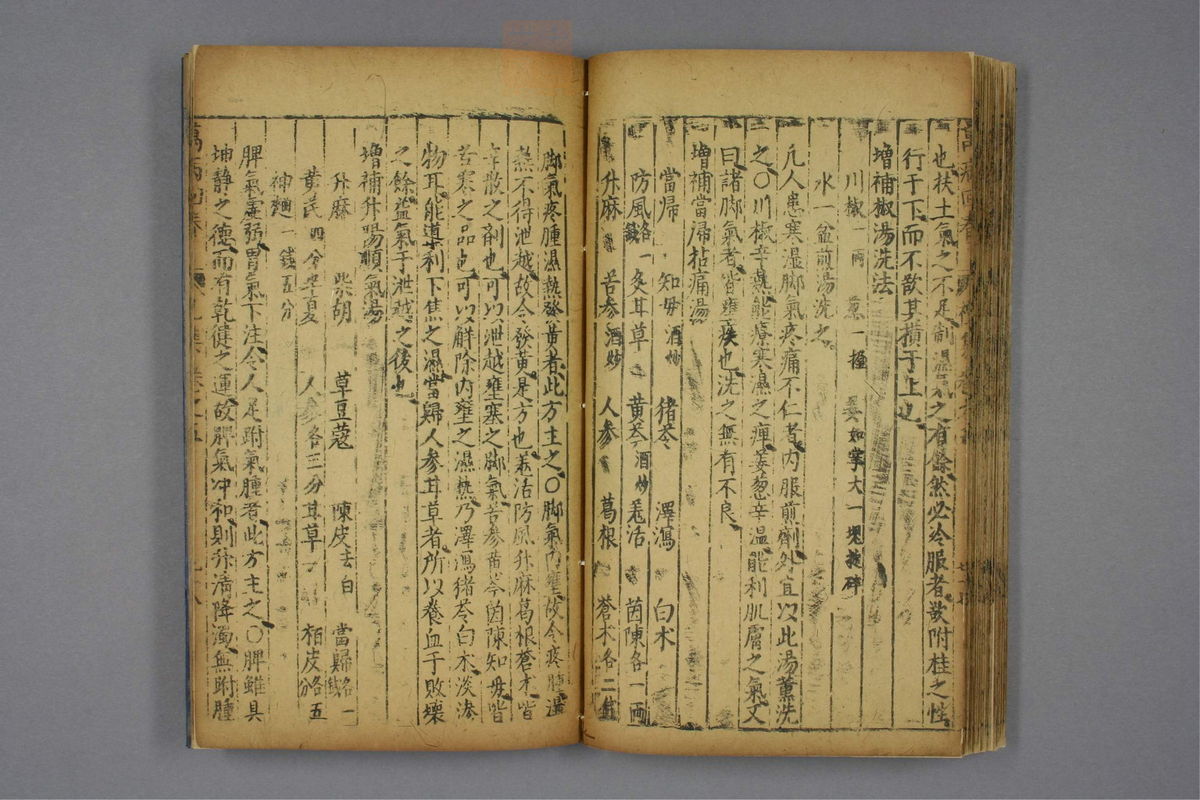 也扶土氣之不足制濕氣之有餘然必冷服者欲附桂之性
行于下而不欲其橫于上也
增補椒湯洗法
川椒一兩 葱一握 姜如掌大一塊搥碎
水一盆煎湯洗之
凡人患寒湿脚氣疼痛不仁者内服煎劑外宜以此湯薰洗
之〇川椒辛熱能療寒濕之痺姜葱辛温能利肌膚之氣又
曰諸脚氣者皆壅疾也洗之無有不良
增補當歸拈痛湯
當歸 知毋酒炒 猪苓 澤瀉 白术
防風各一錢 炙耳草 黄芩酒炒 羌活 茵陳各一両
升麻 苦参酒炒 人参 葛根 蒼术各二錢
脚氣疼腫濕熱發黄者此方主之〇脚氣内壅故令疼腫濕
熱不得泄越故令發黄是方也羌活防風升麻葛根蒼术皆
辛散之剤也可以泄越壅塞之脚氣苦参黄芩茵陳知毋皆
苦寒之品也可以觧除内壅之濕熱乃澤瀉猪苓白术淡滲
物耳能導利下焦之濕當歸人参耳草者所以養血于敗壞
之餘益氣于泄越之後也
增補升陽順氣湯
升麻 柴胡 草豆蔻 陳皮去白 當歸各一錢
黄芪四分 半夏 人参各三分 耳草 栢皮各五分
神麯一錢五分
脾氣虚弱胃氣下注令人足跗氣腫者此方主之〇脾雖具
坤静之德而有乾健之運故脾氣冲和則升淸降濁無跗腫